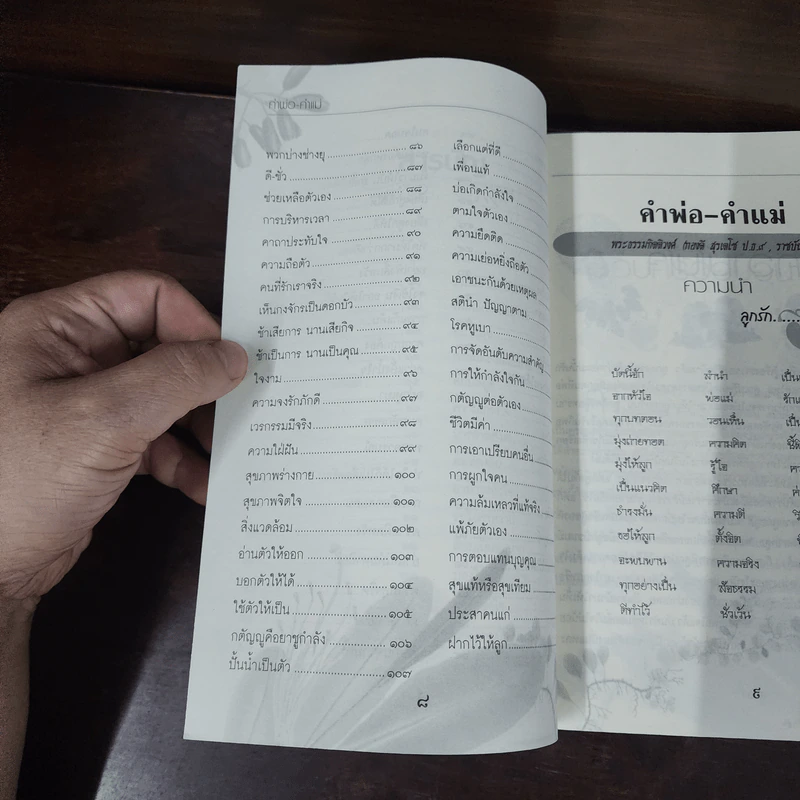 คำพ่อ-คำแม่
พวกบ่างช่างยุ ๘๖
ดี-ชั่ว ๘๗
ช่วยเหลือตัวเอง ๘๘
การบริหารเวลา ๘๙
คาถาประทับใจ ๙๐
ความถือตัว ๙๑
คนที่รักเราจริง ๙๒
เห็นกงจักรเป็นดอกบัว ๙๓
ช้าเสียการ นานเสียกิจ ๙๔
ช้าเป็นการ นานเป็นคุณ ๙๕
ใจงาม ๙๖
ความจงรักภักดี ๙๗
เวรกรรมมีจริง ๙๘
ความใฝ่ฝัน ๙๙
สุขภาพร่างกาย ๑๐๐
สุขภาพจิตใจ ๑๐๑
สิ่งแวดล้อม ๑๐๒
อ่านตัวให้ออก ๑๐๓
บอกตัวให้ได้ ๑๐๔
ใช้ตัวให้เป็น ๑๐๕
กตัญญูคือยาชูกำลัง ๑๐๖
ปั้นน้ำเป็นตัว ๑๐๗
เลือกแต่ที่ดี
เพื่อนแท้
บ่อเกิดกำลังใจ
ตามใจตัวเอง
ความยึดติด
ความเย่อหยิ่งถือตัว
เอาชนะกันด้วยเหตุผล
สตินำ ปัญญาตาม
โรคหูเบา
การจัดอันดับความสำคัญ
การให้กำลังใจกัน
กตัญญูต่อตัวเอง
ชีวิตมีค่า
การเอาเปรียบคนอื่น
การผูกใจคน
ความล้มเหลวที่แท้จริง
แพ้ภัยตัวเอง
การตอบแทนบุญคุณ
สุขแท้หรือสุขเทียม
ประสาคนแก่
ฝากไว้ให้ลูก
๘
คำพ่อ-คำแม่
สุรเตโช ป.ธ.๙ ,
ความนำ
ลูกรัก.....
พ่อแม่
วอนเตือน
มุ่งถ่ายทอด ความคิด
มุ่งให้ลูก
เป็นแนวคิด ศึกษา
ธำรงมั่น ความดี
ขอให้ลูก ตั้งจิต
ความจริง
ทุกอย่างเป็น สื่อธรรม
ที่ทำไว้ ชั่วเว้น
๙